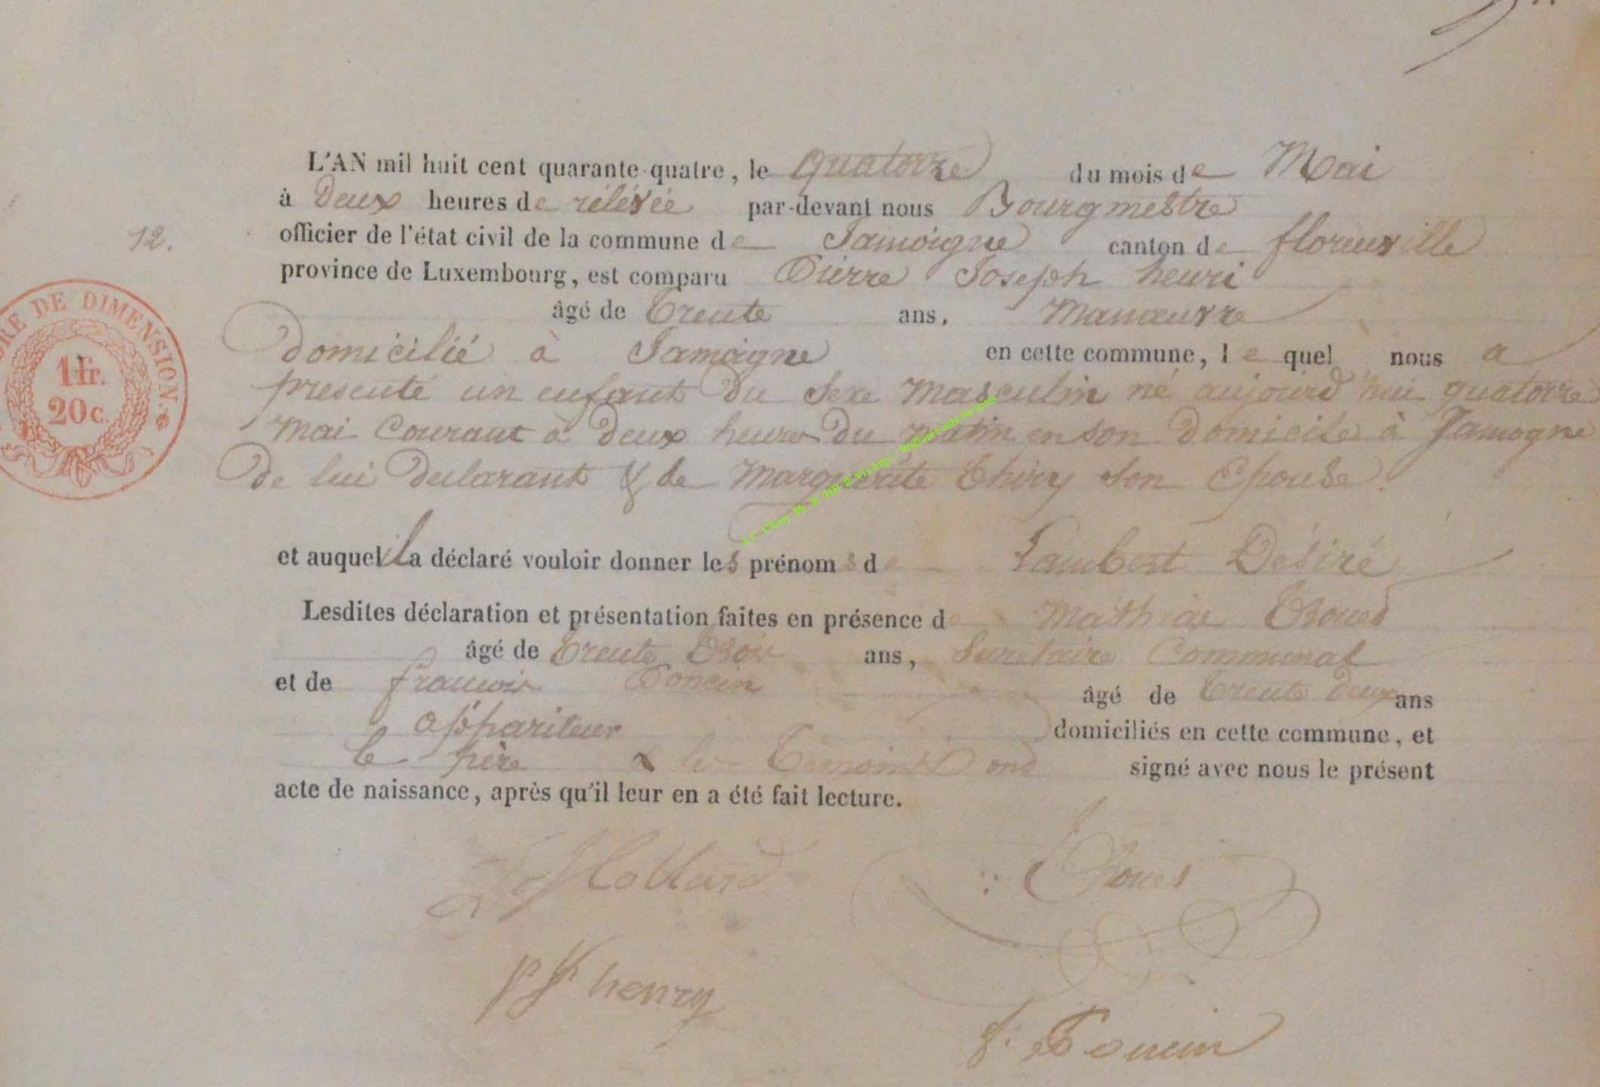 L'AN mil huit cent quarante-quatre, le quatorze du mois de Mai
à deux heures de rélévée par-devant nous Bourgmestre
12.
officier de l'état civil de la commune de Jamoigne canton de florenville
province de Luxembourg, est comparu Pierre Joseph henri
âgé de trente ans, Manœuvre
domicilié à Jamoigne en cette commune, lequel nous a
présenté un enfant du sexe masculin né aujourd'hui quatorze
mai courant à deux heures du matin en son domicile à Jamogne
de lui déclarant & de Marguerite Thiry son épouse.
et auquel il a déclaré vouloir donner les prénoms de Lambert Désiré
Lesdites déclaration et présentation faites en présence de Mathias
âgé de trente trois ans, Secrétaire Communal
et de francois Poncin âgé de trente deux ans
appariteur domiciliés en cette commune, et
le père & les témoins ont signé avec nous le présent
acte de naissance, après qu'il leur en a été fait lecture.
DE DIMENSION
1 fr.
20 c.
henry
f. Poncin